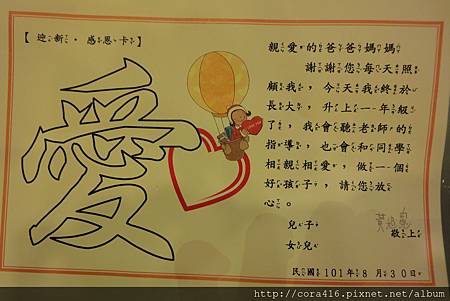 【迎新．感恩卡】
愛
親愛的爸爸媽媽
謝謝您每天照
顧我，今天我終於
長大，升上一年級
了，我會聽老師的
指導，也會和同學
相親相愛，做一個
好孩子，請您放
心。
兒子
女兒
敬上
民國101年8月30日
http://cora416.pixnet.net/album